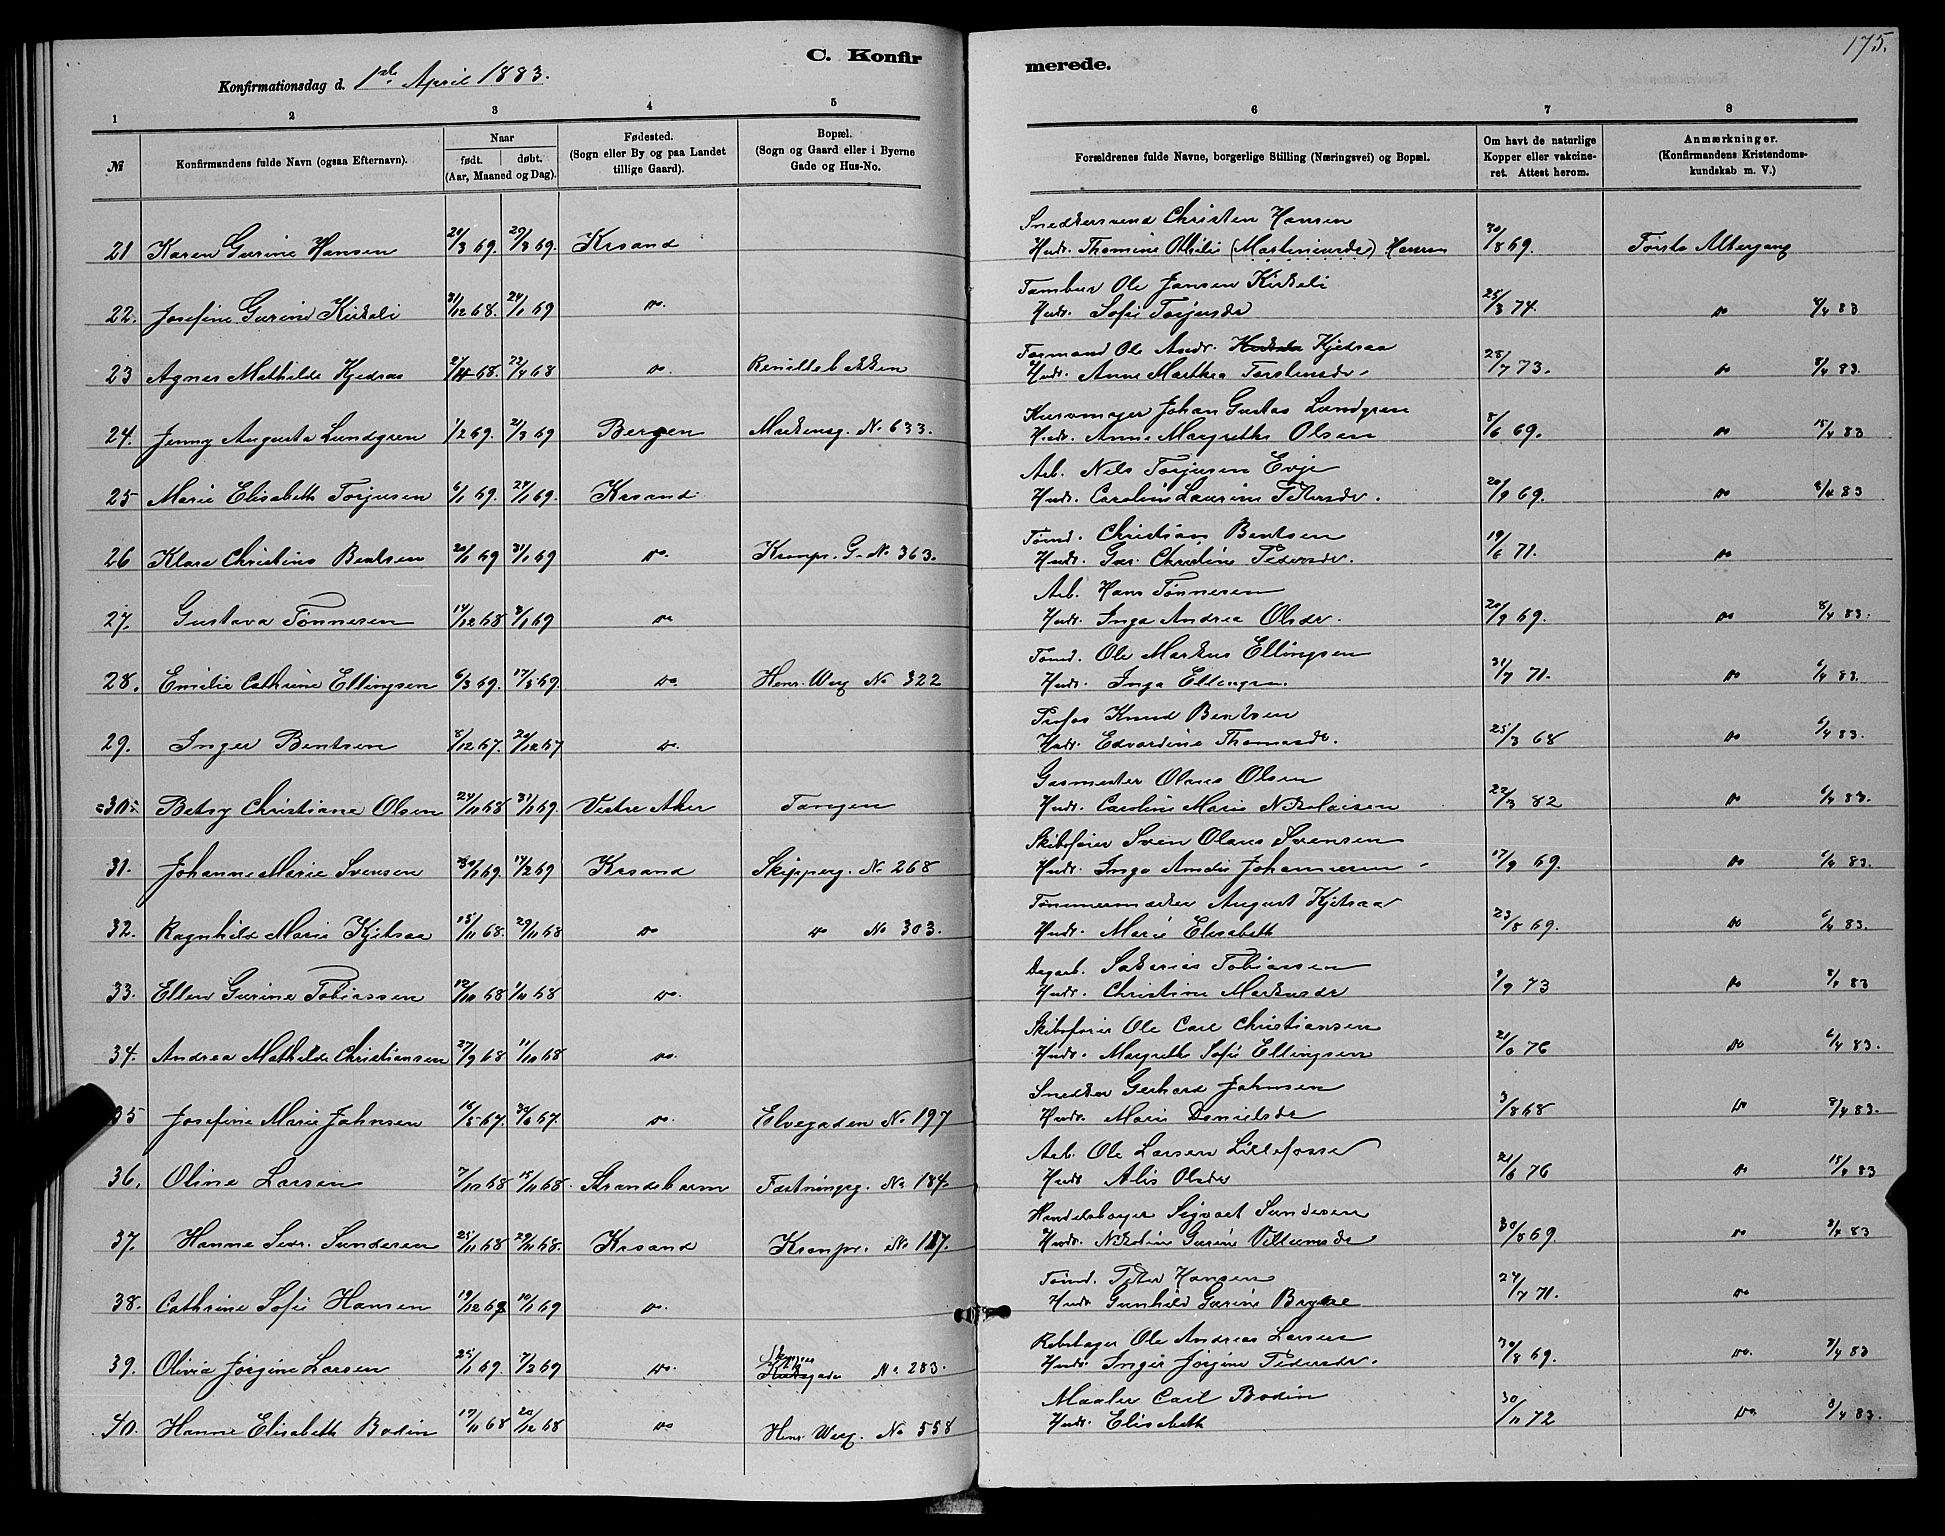 175.
C. Konfirmerede.
Konfirmationsdag d. 1ste April 1883.
1 2 3 4 5 6 7 8
№ Konfirmandens fulde Navn (ogsaa Efternavn). Naar født. døbt. (Aar, Maaned og Dag). Fødested. (Sogn eller By og paa Landet tillige Gaard). Bopæl. (Sogn og Gaard eller i Byerne Gade og Hus-No. Forældrenes fulde Navne, borgerlige Stilling (Næringsvei) og Bopæl. Om havt de naturlige Kopper eller vakcineret. Attest herom. Anmærkninger. (Konfirmandens Kristendomskundskab m. V.)
Snedkersvend Christen Hansen
21 Karen Gurine Hansen 20/3 69. 29/3 69. Krsand Hudr. Thomine Ottilie (Martiniusdr) Hansen 30/8 69. Første Altergang
Tambur Ole Jansen Kirkeli
22. Josefine Gurine Kirkeli 31/12 68. 24/1 69 do. Hudr. Sofie Torjusdr 25/3 74. do 8/4 83
Formand Ole Andr. Kjedsaa
23 Agnes Mathilde Kjedsaa 22/4 68 do. Hudr. Anne Marthea Torstensdr. 28/7 73. do 8/4 83.
Johan Gustav Lundgren
24. Jenny Augusta Lundgren 1/2 69. 21/3 69 Bergen Markensg. No 633. Hudr. Anne Margrethe Olsen 8/6 69. do 15/4 83
Arb. Nels Torjusen Evje
25 Marie Elisabeth Torjusen 6/1 69. 24/1 69. Krsand. Hudr. Caroline Laurine Pettersdr. 20/9 69. do 8/4 83
Tømd. Christian Bentsen
26 Klara Christine Bentsen 20/1 69 31/1 69 do. Kronpr. G. No 363. Hudr. Gur. Christine Pedersdr. 19/6 71. do
Arb. Hans Tønnesen
27. Gustava Tønnesen 14/12 68 3/1 69 do Hudr. Inga Andrea Olsdr. 20/9 69. do 8/4 83.
Tømd. Ole Markus Ellingsen
28. Emilie Cathrine Ellingsen 6/3 69. 17/5 69. do. Henr. Werg. No 322 Hudr. Inga Ellingsen 31/7 71. do 6/4 83.
Profos Knud Bentsen
29. Inger Bentsen 8/12 67. 26/12 67 do. Hudr. Edvardine Thomasdr. 25/3 68 do 6/4 83.
Gasmester Olaus Olsen
30. Betsy Christiane Olsen 24/11 68 31/1 69. Vestre Aker Tangen Hudr. Caroline Marie Nikolaisen 22/3 82 do 6/4 83.
Skibsfører Sven Olaus Svensen
31. Johanne Marie Svensen 14/2 69 Krsand Skipperg. No 268 Hudr. Inga Johannesen 17/9 69. do 6/4 83.
August Kjetsaa
32. Ragnhild Marie Kjetsaa 15/11 68. 29/11 68 do do No 303. Hudr. Marie Elisabeth 23/8 69. do 6/4 83.
Dagarb. Sakarias Tobiassen
33. Ellen Gurine Tobiassen 12/10 68 1/11 68 do. Hudr. Christine Markusdr 9/9 73 do 8/4 83
Skibsfører Ole Carl Christiansen
34. Andrea Mathilde Christiansen 27/9 68 11/10 68 do. Hudr. Margrethe Sofie Ellingsen 21/6 76 do 6/4 83.
Snedker Gerhard Johnsen
35 Josefine Marie Johnsen 16/5 67. 30/6 67. do. Elvegaden No 197 Hudr. Marie Danielsdr 3/8 68 do 8/4 83.
Arb. Ole Larsen Lillefosse
36. Oline Larsen 7/10 68 15/11 68. Strandebarm Fæstningsg. No 184. Hudr. Alis Olsdr 21/6 76 do 15/4 83
Handelsborger Sigvart Sundesen
37. Hanne Sevr. Sundesen 25/11 68 29/11 68. Krsand Kronpr. No 117. Hudr. Nikoline Gurine Villumsdr 30/8 69. do 8/4 83
Tømd. Peter Hansen
38. Cathrine Sofie Hansen 10/1 69 do. Hudr. Gunhild Gurine Brække 24/7 71. do
Rebslager Ole Andreas Larsen
39. Olivia Jørgine Larsen 25/1 69. 7/3 69 do. No 283. Hudr. Inger Jørgine Pedersdr. 30/8 69. do. 8/4 83
Maaler Carl Bodin
40. Hanne Elisabeth Bodin 17/11 68 20/12 68 do Henr. Werg. No 558 Hudr. Elisabeth 30/11 72 do 8/4 83.